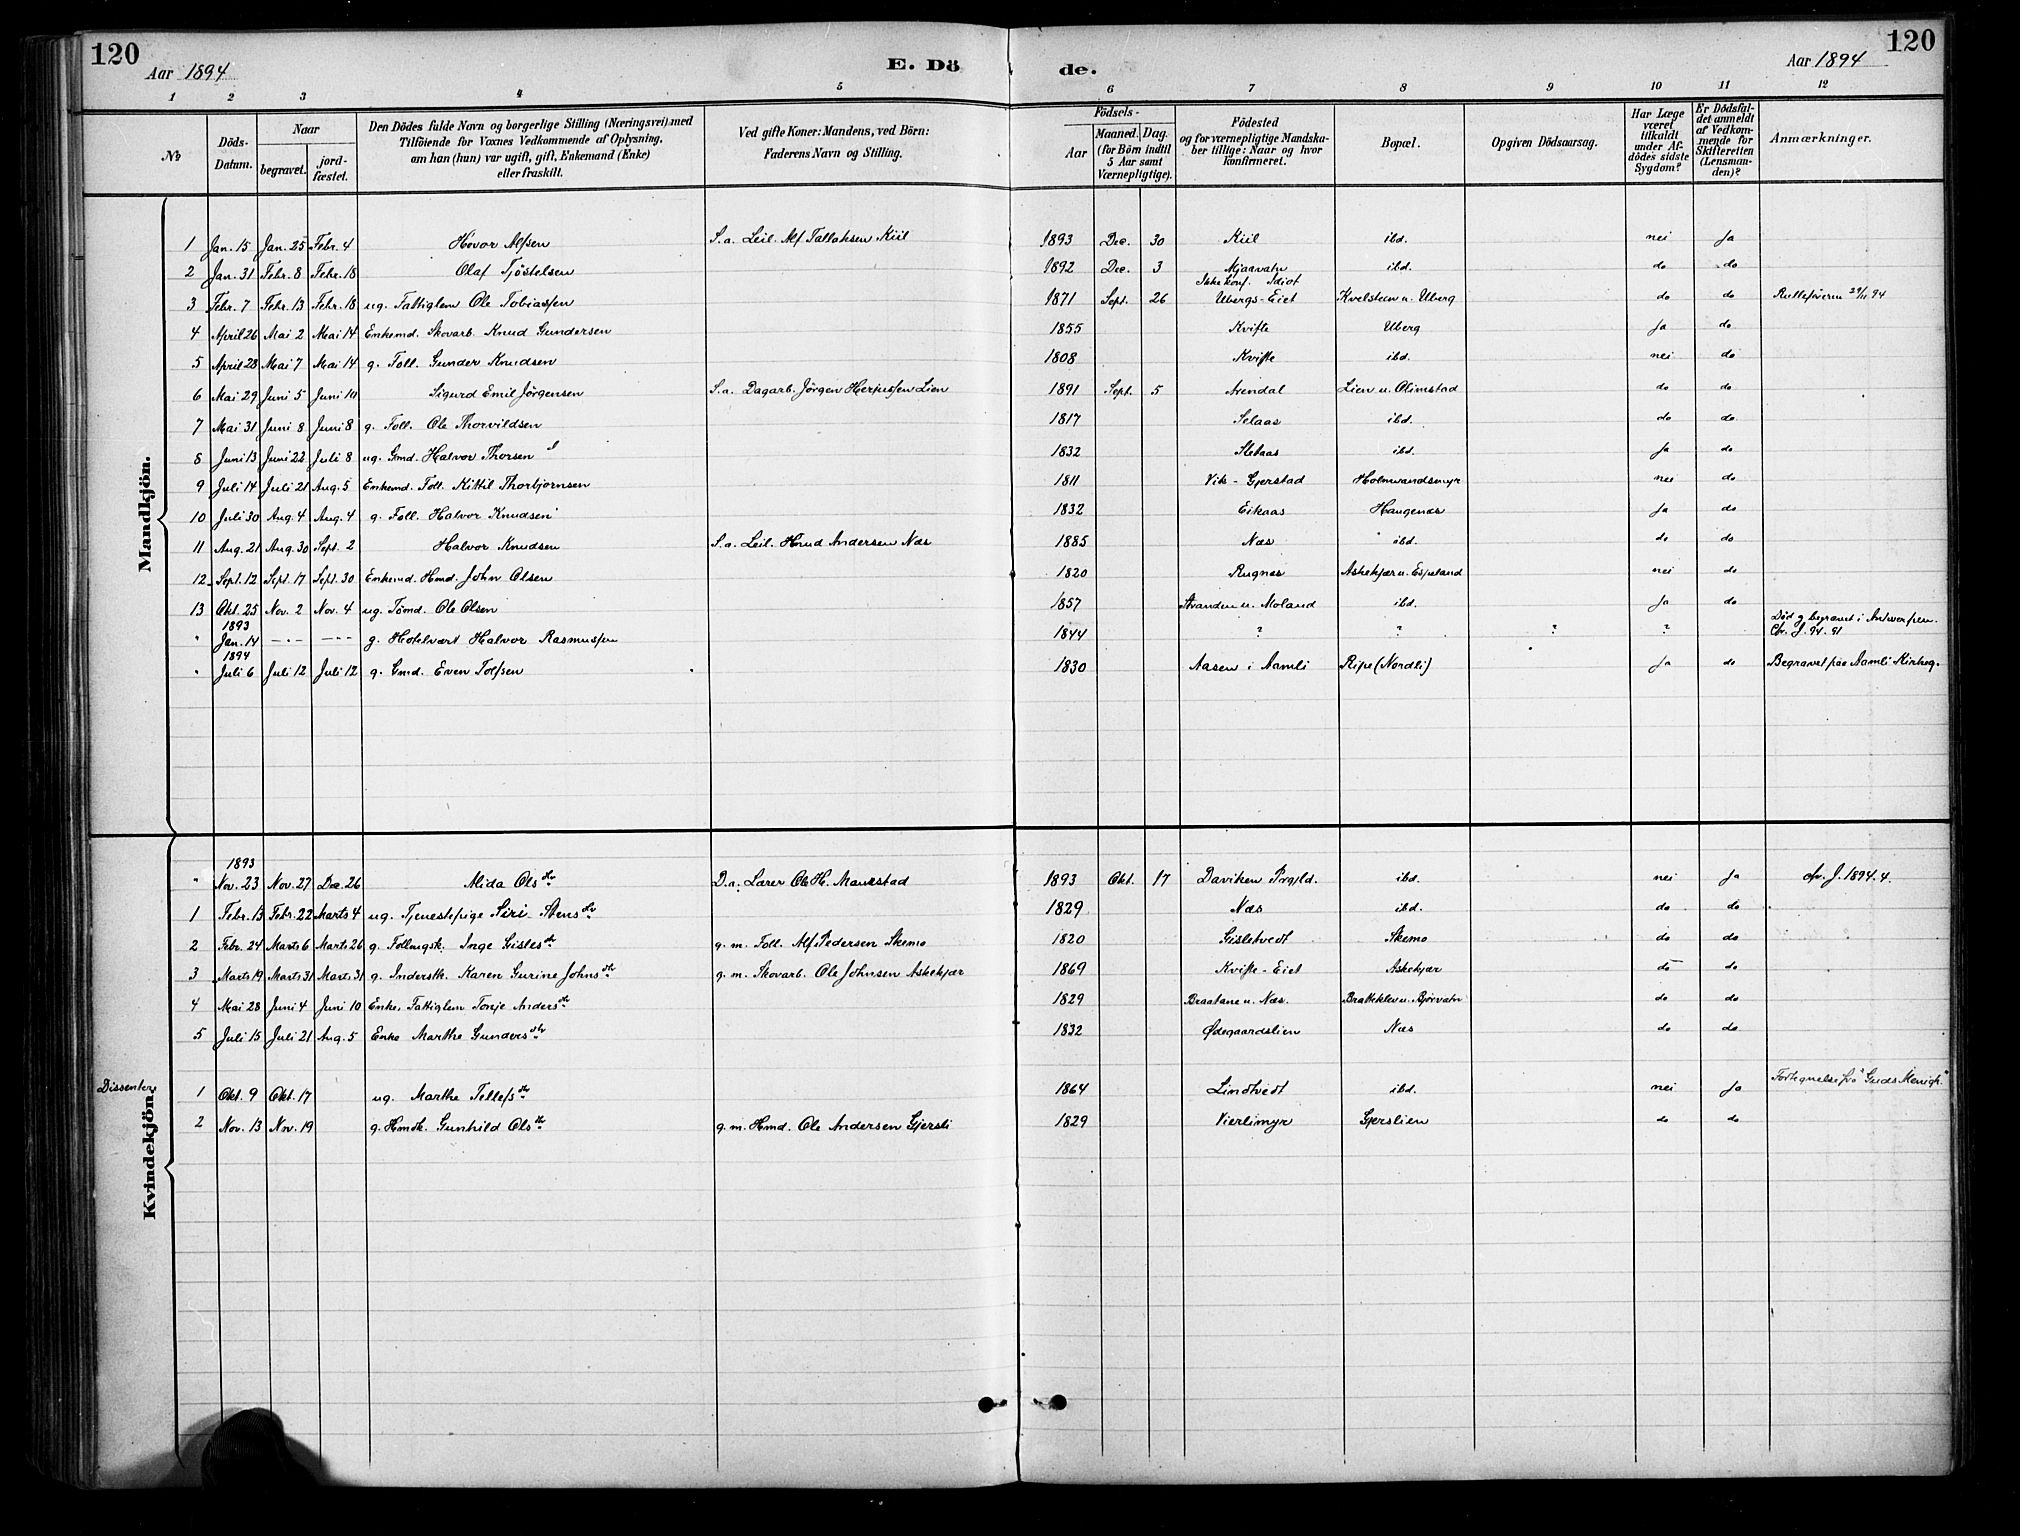 120
Aar 1894
E. Dö
de.
Aar 1894
120
1 2 3 4 5 6 7 8 9 10 11 12
№
Döds-Datum.
Naar
begravet.
jord-fæstet.
Den Dödes fulde Navn og borgerlige Stilling (Næringsvei) med
Tilföiende for Voxnes Vedkommende af Oplysning,
om han (hun) var ugift, gift, Enkemand (Enke)
eller fraskilt.
Ved gifte Koner: Mandens, ved Börn:
Faderens Navn og Stilling.
Födsels-
Aar
Maaned. Dag.
(for Börn indtil
5 Aar samt
Værnepligtige).
Födested
og for værnepligtige Mandska-
ber tillige: Naar og hvor
konfirmeret.
Bopæl.
Opgiven Dödsaarsag.
Har Læge
været
tilkaldt
under Af-
dödes sidste
Sygdom?
Er Dödsfal-
det anmeldt
af Vedkom-
mende for
Skifteretten
(Lensman-
den)?
Anmærkninger.
Mandkjön.
1 Jan. 15 Jan. 25 Febr. 4 Hovor Alfsen S.a. Leil. Alf Tallaksen Kiil 1893 Dec. 30 Kiil ibd. nei Ja
2 Jan. 31 Febr. 8 Febr. 18 Olaf Tjöstelsen 1892 Dec. 3 Mjaavatn ibd. do do
Ikke konf. Idiot
3 Febr. 7 Febr. 13 Febr. 18 ug. Fattiglem Ole Tobiassen 1871 Sept. 26 Ubergs-Eiet Kvelsteen u. Uberg do do Rulleføreren 29/11 94
4 April 26 Mai 2 Mai 14 Enkemd. Skovarb. Knud Gundersen 1855 Kvifte Uberg Ja do
5 April 28 Mai 7 Mai 14 g. Foll. Gunder Knudsen 1808 Kvifte ibd. nei do
6 Mai 29 Juni 5 Juni 10 Sigurd Emil Jörgensen S.a. Dagarb. Jörgen Herjussen Lien 1891 Sept. 5 Arendal Lien u. Olimstad do do
7 Mai 31 Juni 8 Juni 8 g. Foll. Ole Thorvildsen 1817 Selaas ibd. do do
8 Juni 13 Juni 22 Juli 8 ug. Gmd. Halvor Thorsen 1832 Sletaas ibd. Ja do
9 Juli 14 Juli 21 Aug. 5 Enkemd. Foll. Kittil Thorbjørnsen 1811 Vik - Gjerstad Holmvandsmyr nei do
10 Juli 30 Aug. 4 Aug. 4 g. Foll. Halvor Knudsen 1832 Eikaas Haugenæs Ja do
11 Aug. 21 Aug. 30 Sept. 2 Halvor Knudsen S.a. Leil. Knud Andersen Næs 1885 Næs ibd. do do
12 Sept. 12 Sept. 17 Sept. 30 Enkemd. Hmd. John Olsen 1820 Rugnes Askekjær u. Espeland nei do
13 Okt. 25 Nov. 2 Nov. 4 ug. Tømd. Ole Olsen 1857 Stranden u. Moland ibd. Ja do
1893
" Jan. 14 —·— —·— g. Hotelvært Halvor Rasmussen 1844 ? ? ? ? Død og begravet i Antwerpen. Cfr. J. 94. 91
1894
" Juli 6 Juli 12 Juli 12 g. Gmd. Even Tolfsen 1830 Aasen i Aamli Ripe (Nordli) Ja do Begravet paa Aamli Kirkeg.
Kvindekjön.
1893
" Nov. 23 Nov. 27 Dec. 26 Alida Olsdtr D.a. Lærer Ole H. Maurstad 1893 Okt. 17 Daviken Prgjld. ibd. nei Ja cfr. J. 1894. 4.
1 Febr. 13 Febr. 22 Marts 4 ug. Tjenestepige Siri Stensdtr 1829 Næs ibd. do do
2 Febr. 24 Marts 6 Marts 26 g. Follmgsk. Inge Gislesdtr g. m. Foll. Alf Pedersen Skemo 1820 Gisletvedt Skemo do do
3 Marts 19 Marts 31 Marts 31 g. Inderstk. Karen Gurine Johnsdtr g. m. Skovarb. Ole Johnsen Askekjær 1869 Kvifte-Eiet Askekjær do do
4 Mai 28 Juni 4 Juni 10 Enke, Fattiglem Tonje Andersdtr 1829 Braatane u. Næs. Bratteklev u. Bjørvatn do do
5 Juli 15 Juli 21 Aug. 5 Enke Marthe Gundersdtr 1832 Ødegaardslien Næs do do
Dissentere
1 Okt. 9 Okt. 17 ug. Marthe Tellefsdtr 1864 Lindtvedt ibd. nei Ja Fortegnelse fra "Guds Menigh."
2 Nov. 13 Nov. 19 g. Hmdk. Gunhild Olsdtr g. m. Hmd. Ole Andersen Gjersli 1829 Vierlimyr Gjerslien do do